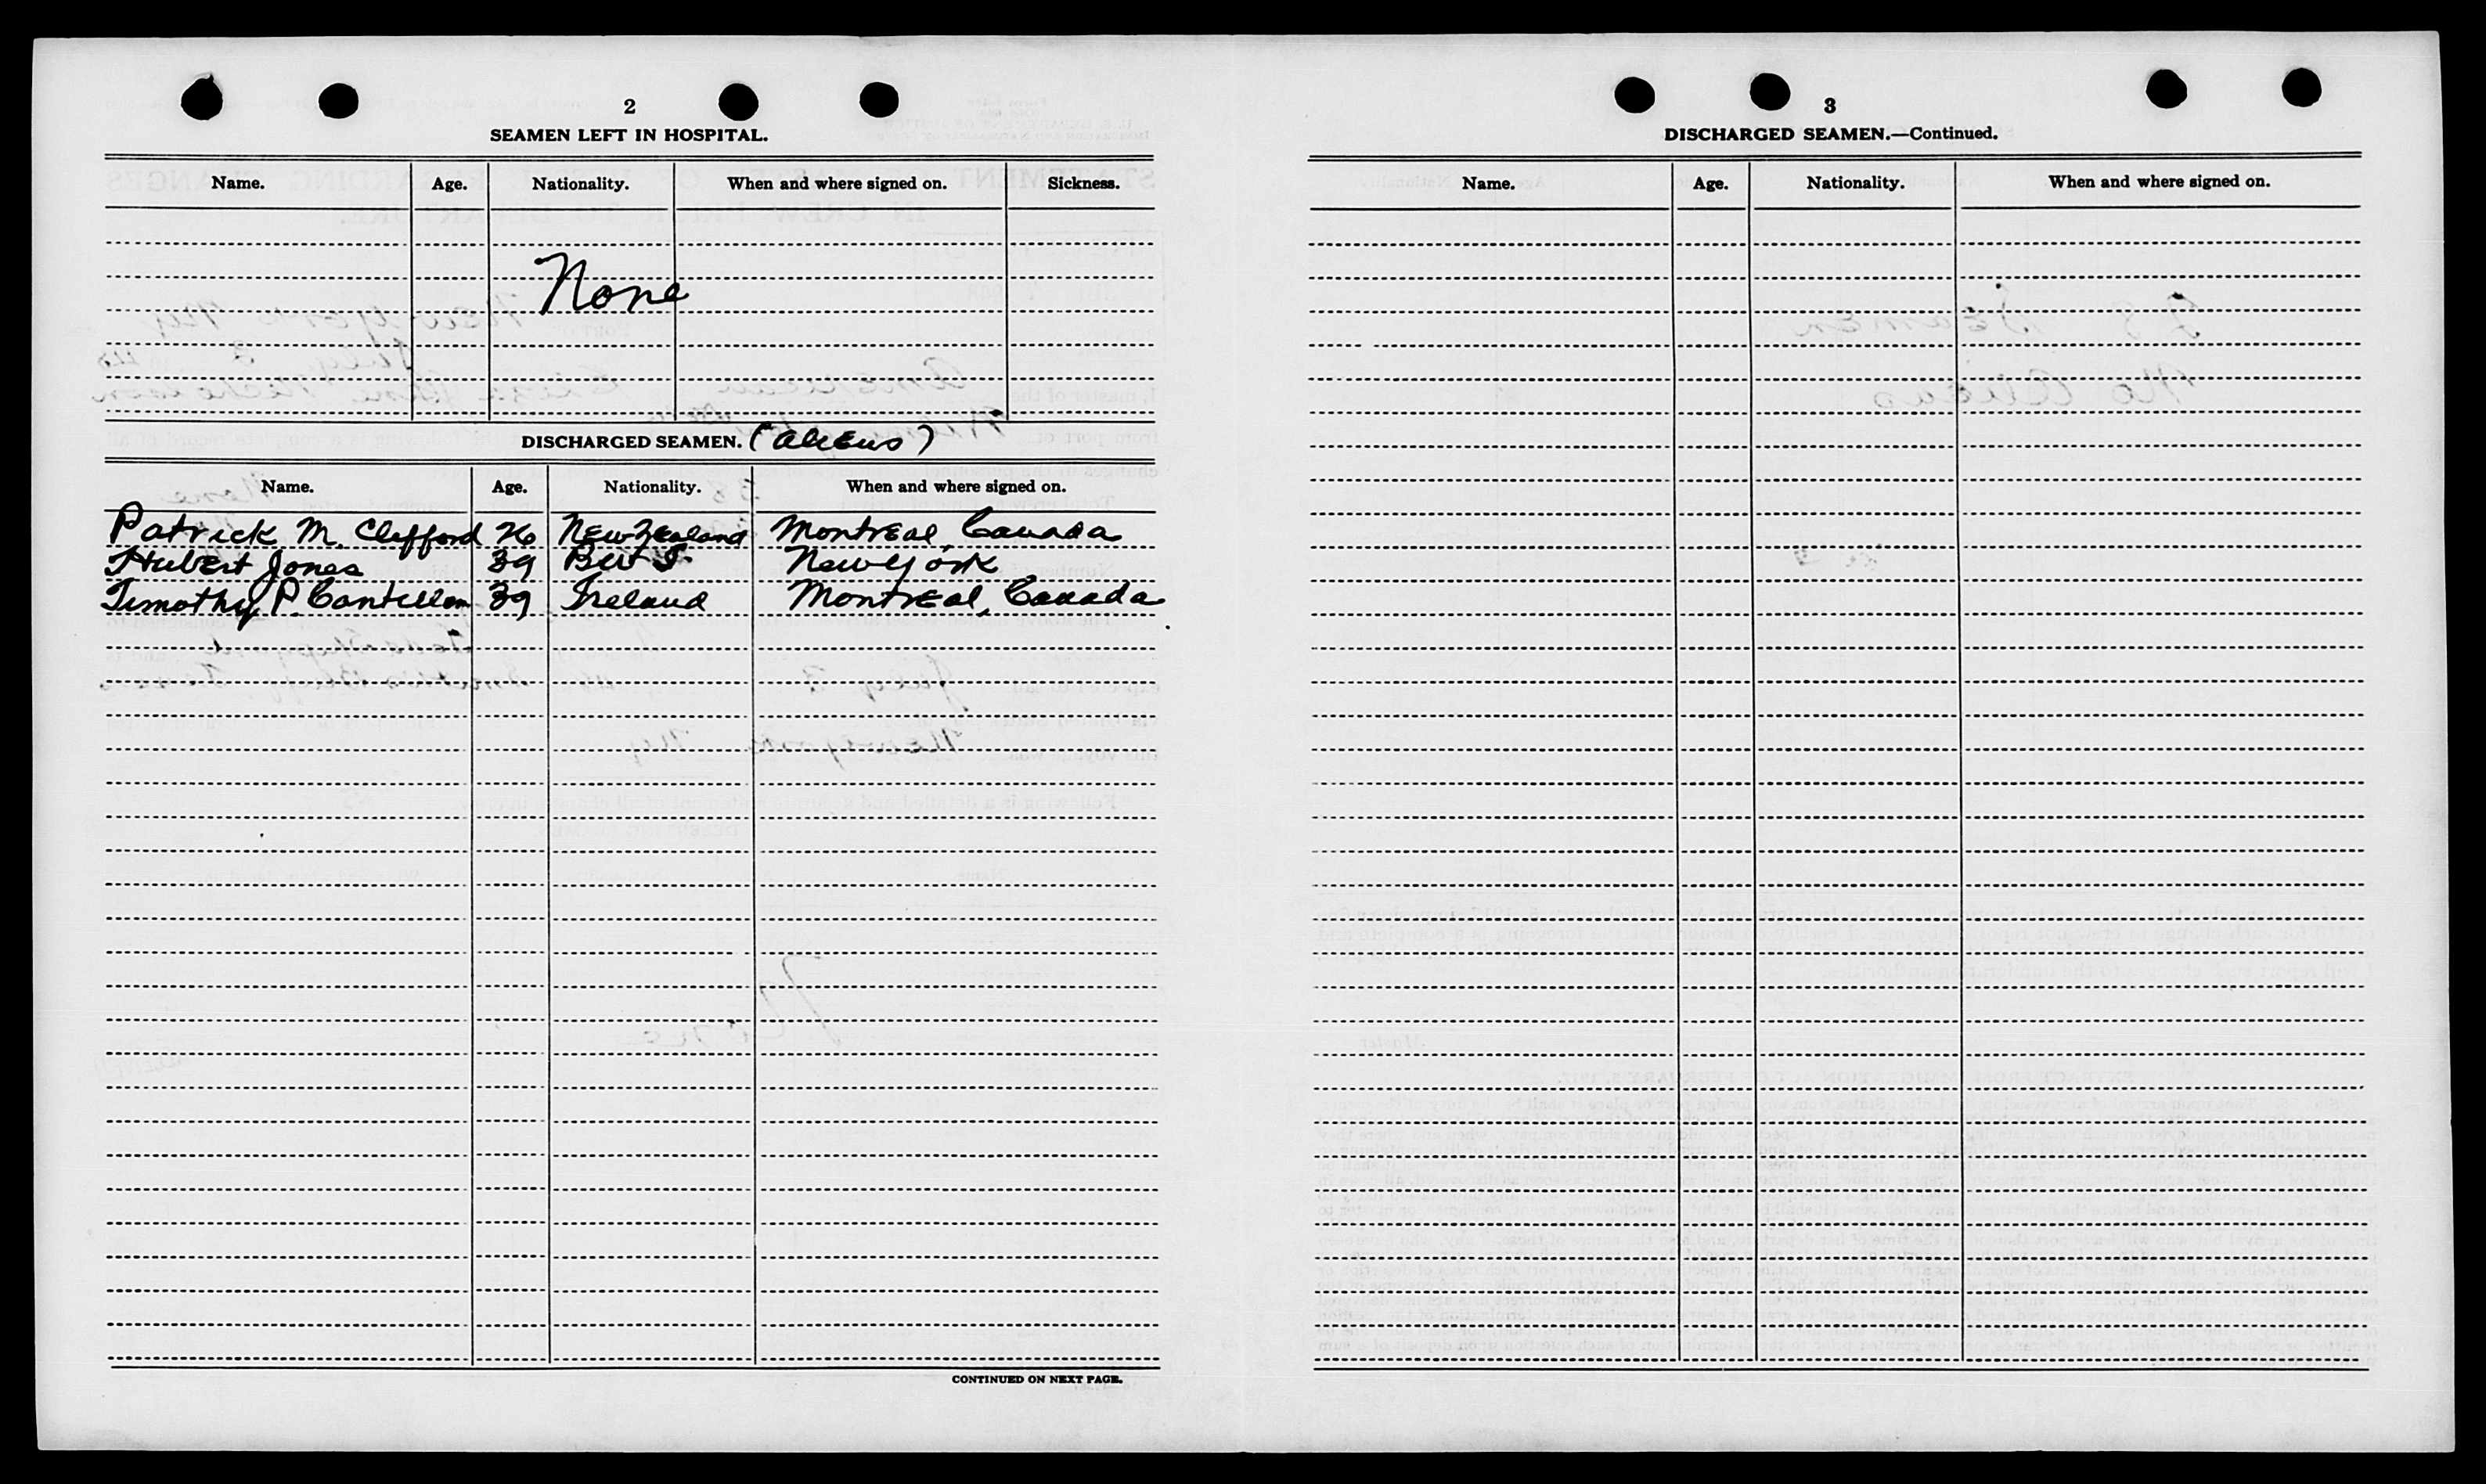 2
SEAMEN LEFT IN HOSPITAL.
Name. Age. Nationality. When and where signed on. Sickness.
None
DISCHARGED SEAMEN. (Aliens)
Name. Age. Nationality. When and where signed on.
Patrick M. Clifford 26 New Zealand Montreal, Canada
Hubert Jones 39 New York
Timothy P. Cantillon 39 Ireland Montreal, Canada
CONTINUED ON NEXT PAGE.
3
DISCHARGED SEAMEN.—Continued.
Name. Age. Nationality. When and where signed on.